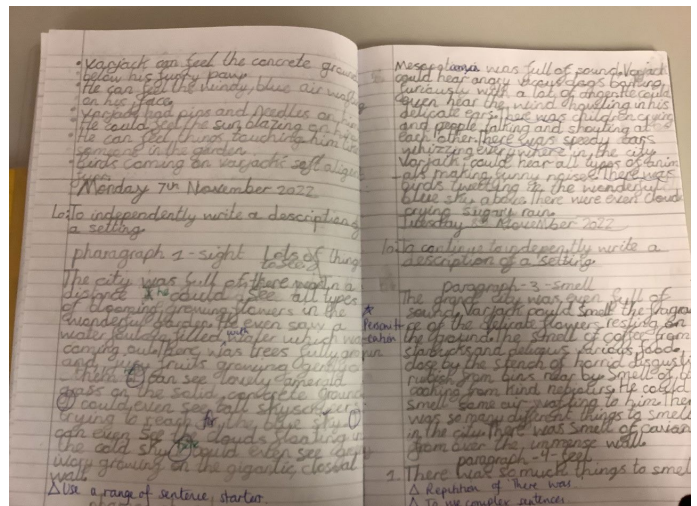 • Varjack can feel the concrete ground
below his furry paws
• He can feel the windy, blue air
on his face.
• Varjack had pins and needles on his
• He could feel the sun blazing on
• He can feel things touching him
someone in the garden.
• Birds coming on varjack's soft
Monday 7th November 2022
Lo: To independently write a description of
a setting.
pharagraph 1 - sight Lots of things
to see
The city was full of, there might in a
distance he could see all types
of blooming growing flowers in the
wonderful garden. He even saw a
water filled with water which was
coming out, there was trees fully grown
and fruits growing
Then can see lovely emerald
grass on the solid, concrete ground
could even see tall skyscrapers
trying to reach for the blue sky
can even see the clouds floating in
the cold sky could even see
growing on the gigantic, clossal
wall
△ Use a range of sentence starter.
was full of sound. Varjack
could hear angry vicous dogs barking
furiously with a lot of he could
even hear the wind howling in his
delicate ears. There was children crying
and people talking and shouting at
each other. There was speedy cars
whizzing every where in the city
Varjack could hear all types of anim
als making funny noises. There was
birds tweeting in the wonderful
blue sky above there were even clouds
crying sugary rain.
Tuesday 8th November 2022
lo: To continue to indepently write a
description of a setting.
paragraph - 3 - smell
The grand city was even full of
sound. Varjack could smell the fragran
ce of the delicate flowers resting on
the ground. The smell of coffee from
starbucks and delicous various food
close by the stench of horrid disgusting
rubish from bins near by smell of
cooking from kind He could
smell some air wafting to him. There
was so many different things to smell
in the city. There was smell of
from over the immense wall.
paragraph - 4 - feel
1. There was so much things to smell
△ Repitition of There was
△ To use complex sentences